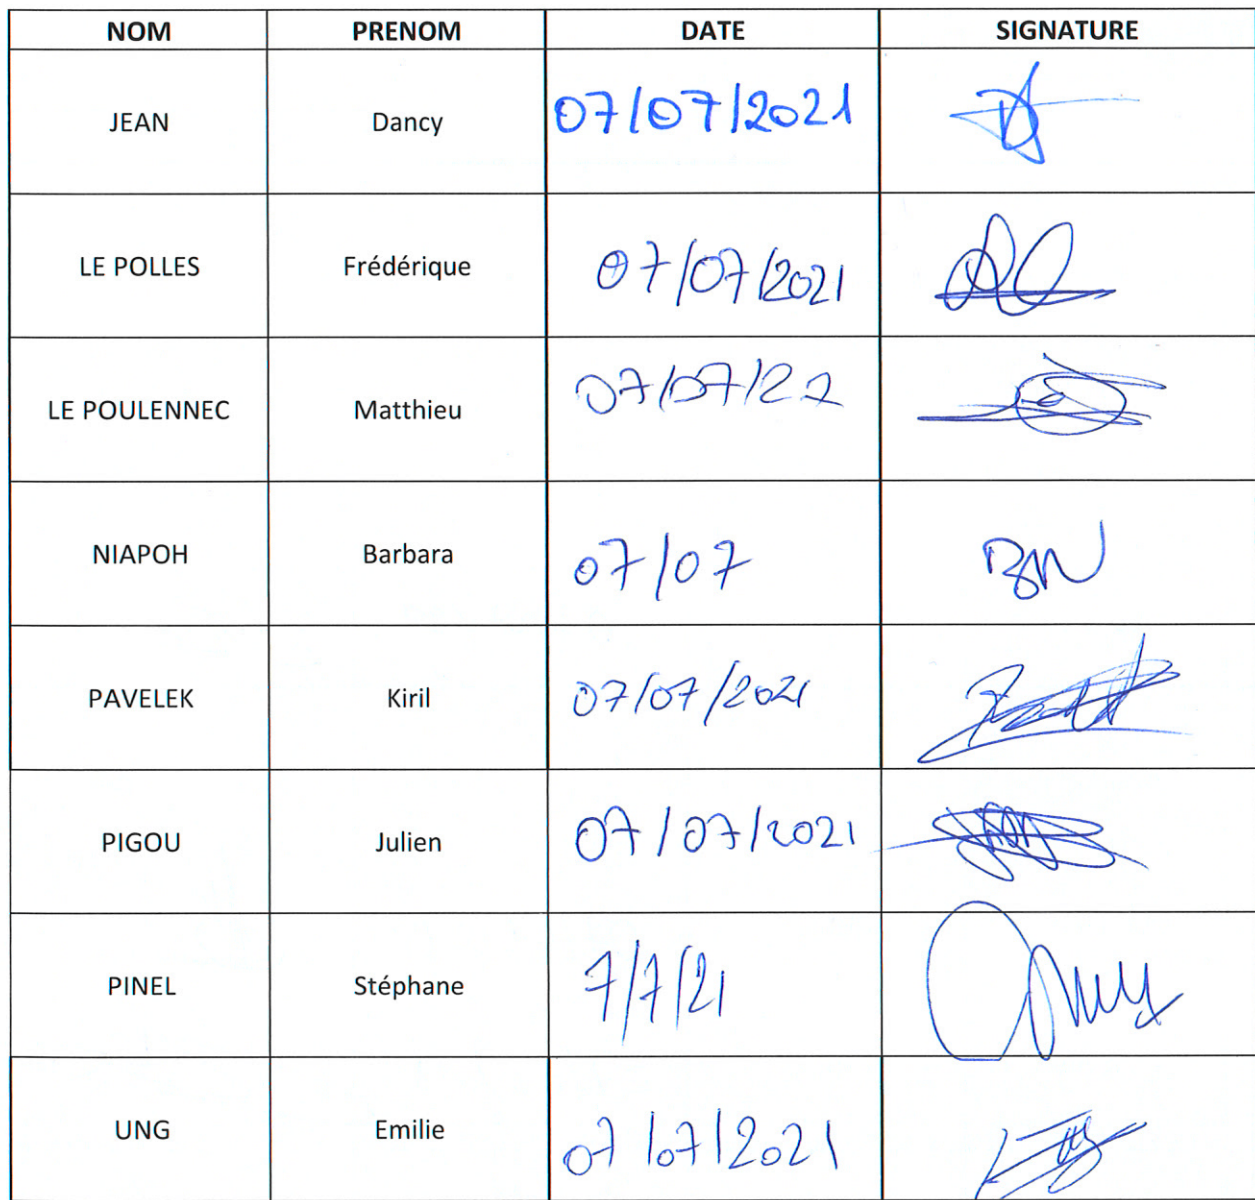 NOM PRENOM DATE SIGNATURE
JEAN Dancy 07/07/2021
LE POLLES Frédérique 07/07/2021
LE POULENNEC Matthieu 07/07/22
NIAPOH Barbara 07/07 BN
PAVELEK Kiril 07/07/2021
PIGOU Julien 07/07/2021
PINEL Stéphane 7/7/21
UNG Emilie 07/07/2021